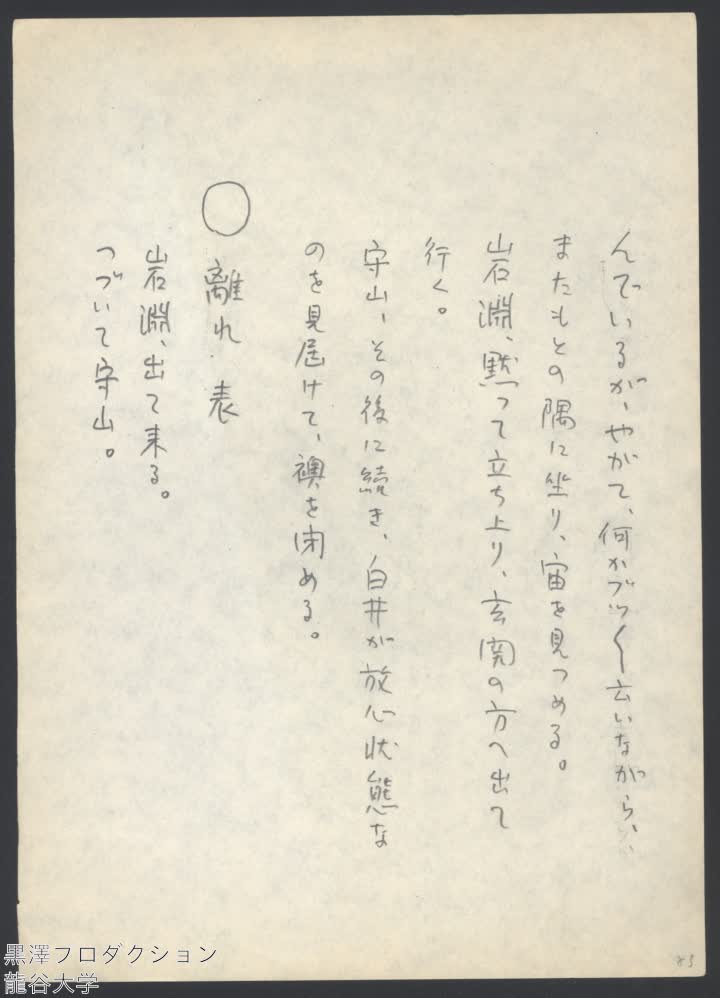 んでいるが、やがて、何かブツ〱云いながら、
またもとの隅に坐り、宙を見つめる。
岩淵、黙って立ち上り、玄関の方へ出て
行く。
守山、その後に続き、白井が放心状態な
のを見届けて、襖を閉める。
○ 離れ 表
岩淵、出て来る。
つづいて守山。
黒澤プロダクション
龍谷大学